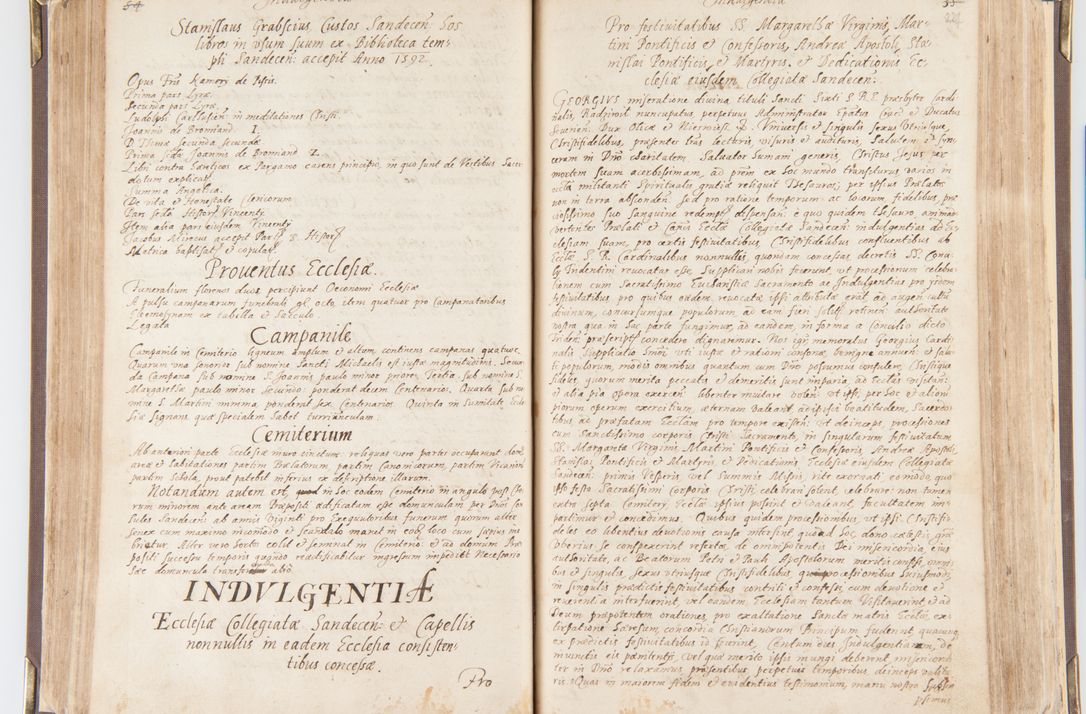 54
Indulgentia
Stanislaus Grabscius Custos Sandecen: hos
libros in usum suum ex Bibliotheca tem-
pli Sandecen: accepit Anno 1592.
Opus Fris Rameri de Pisis.
Prima pars Lyræ.
Secunda pars Lyræ.
Ludolph Carthusien: in meditationes Christi.
Joannis de Bromiand I.
D. Thomæ Secunda Secundæ
Prima Joannis de Bromiand 2.
Libri contra hæreticos ex Pargamo carens principio, in quo sunt de Vestibus Sacer
dotum explicat
Summa Angelica.
De vita et Honestate Clericorum
Pars Histor Vincenty.
Item alia pars eiusdem Vincenty
Jacobus accepit Part 3. Histor
Metrica baptisat: et copulat:
Prouentus Ecclesiæ.
Funeralium florenos duos percipiunt Oeconomi Ecclesiæ
A pulsu campanarum funebrali gr. octo, item quatuor pro Campanatoribus
Eleemosynam ex tabella et Sacculo
Legata
Campanile
Campanile in Cemiterio ligneum amplum et altum continens campanas quatuor.
Quarum una sonoris sub nomine Sancti Michaelis est iustæ magnitudinis. Secun
da Campana sub nomine S. Joannis paulo minor priore. Tertia sub nomine S.
Margarethæ paulo minor secundo: ponderat decem Centenarios. Quarta sub no
mine S. Martini minima ponderat sex Centenarios. Quinta in Sumitate Eccle
siæ signans quæ specialem habet turrianculam.
Cemiterium
Ab anteriori parte Ecclesiæ muro cinctum: reliquas vero partes occuparunt dom
area et habitationes partim Prælatorum, partim Canonicorum, partim Vicarior
partim schola, prout patebit inferius ex descriptione illarum.
Notandum autem est, in hoc eodem Cemiterio in angulo post Cho
rum minorem ante aream Præpositi ædificatam esse domunculam per Dnos Con
sules Sandecen: ab annis viginti pro Exequutoribus funerum quorum alter
senex cum maximo incomodo et scandalo manet in eodem loco cum sæpius ine
brietur Alter vero hortos colit et seminat in Cemiterio, et ad domum Præ
positi successu temporis quando reædificabitur ingressum impediet Necessario
hæc domuncula transferenda alio.
INDVLGENTIÆ
Ecclesiæ Collegiatæ Sandecen: et Capellis
nonnullis in eadem Ecclesia consisten-
tibus concessæ.
Pro
Indulgentia
55
Pro festiuitatibus SS. Margarethæ Virginis, Mar-
tini Pontificis et Confessoris, Andreæ Apostoli, Sta-
nislai Pontificis, et Martyris. et Dedicationis Ec-
clesiæ eiusdem Collegiatæ Sandecen:
GEORGIVS miseratione diuina tituli Sancti Sixti S.R.E. præsbyter Cardi-
nalis, Radziuil nuncupatus, perpetuus Administrator Epatus Crac: et Ducatus
Seuerien: Dux Olicæ et Niesuisij. Vniuersis et singulis sexus Vtriusque
Christifidelibus, præsentes tras lecturis, visuris et audituris, Salutem et syn-
ceram in Dno charitatem. Saluator humani generis, Christus Jesus per
mortem suam acerbissimam, ad prem ex hoc mundo transiturus varios in
eccla militanti Spiritualis gratiæ reliquit Thesauros; per ipsius Prælatos
non in terra abscondend: sed pro ratione temporum: ac locorum fidelibus, præ
tiosissimo suo Sanguine redemptis dispensan: è quo quidem thesauro animad
uertentes Prælati et Canci Ecclæ Collegiatæ Sandecen: indulgentias ad Ec-
clesiam suam, pro certis festiuitatibus, Christifidelibus confluentibus ab
Ecclæ S. R. Cardinalibus nonnullis, quondam concessas, decretis SS. Conci-
ly Tridentini reuocatas esse, Supplicari nobis fecerunt, ut processionum celebra-
tionem cum Sacratissimo Euchanstiæ Sacramento ac Indulgentias pro ijsdem
festiuitatibus, pro quibus eædem reuocatæ ipsi attributæ erat, ad augen: cultu
diuinum, concursumque populorum ad eam fieri solit: retinen: authoritate
nostra qua in hac parte fungimur, ad eandem, in forma a Concilio dicto
Triden: præscript: concedere dignaremur. Nos igr memoratus Georgius Cardi-
nalis Supplicatio: hmoi vti iustæ et rationi consonæ, benigne annuen: et salu-
ti populorum, modis omnibus quantum cum Dno possumus consulere Christique
fideles, quorum merita peccatis et demeritis sunt imparia, ad Ecclas visitan:
et alia pia opera exercen: libenter inuitare volen: ut ipsi, per hoc et aliorū
piorum operum exercitium, æternam valeant, adipisci beatitudinem, Sacerdo
tibus, ad præfatam Ecclam pro tempore existen: ut deinceps, processiones
cum Sanctissimo corporis Christi Sacramento, in singularum festiuitatum
SS: Margarethæ Virginis, Martini Pontificis et Confessoris, Andreæ Apostoli,
Stanislai Pontificis et Martyris, et Dedicationis Ecclesiæ eiusdem Collegiatæ
Sandecen: primis Vesperis, vel Summis Missis, rite exornati, eo modo, quo
ipso festo Sacratissimi Corporis Christi celebrari solent, celebrare: non tamen
extra septa Cemitery, Ecclæ ipsius possint et valeant, facultatem im-
partimur et concedimus. Quibus quidem processionibus, ut ipsi Christifi-
deles eo libentius deuotionis causa intersint, quo ad hoc dono cælestis gra
vberius se conspexerint refertos, de omnipotentis Dei misericordia, eius
authoritate, ac Beatorum Petri et Pauli Apostolorum meritis confisi, omni
bus et singulis, sexus utriusque Christifidelibus, qui processionibus huiusmodi
in singulis prædictis festiuitatibus contriti et confessi, cum deuotione et
reuerentia interfuerint, vel eandem Ecclesiam tantum Visitauerint, et ad
Deum præpotentem orationes, pro exaltatione Sanctæ matris Ecclæ, ex-
tirpatione hæresum, concordia Christianorum Principum fuderint quacunq
ex prædictis festiuitatibus id fecerint, Centum dies Indulgentiarum, de
iniunctis eis pœnitentys, vel qua merito ipsis iniungi deberent, misericordi
ter in Dno relaxamus, præsentibus, perpetuis temporibus, deinceps valitu
ris. Quas in maiorem fidem et euidentius testimonium, manu nostra subscri
psimus